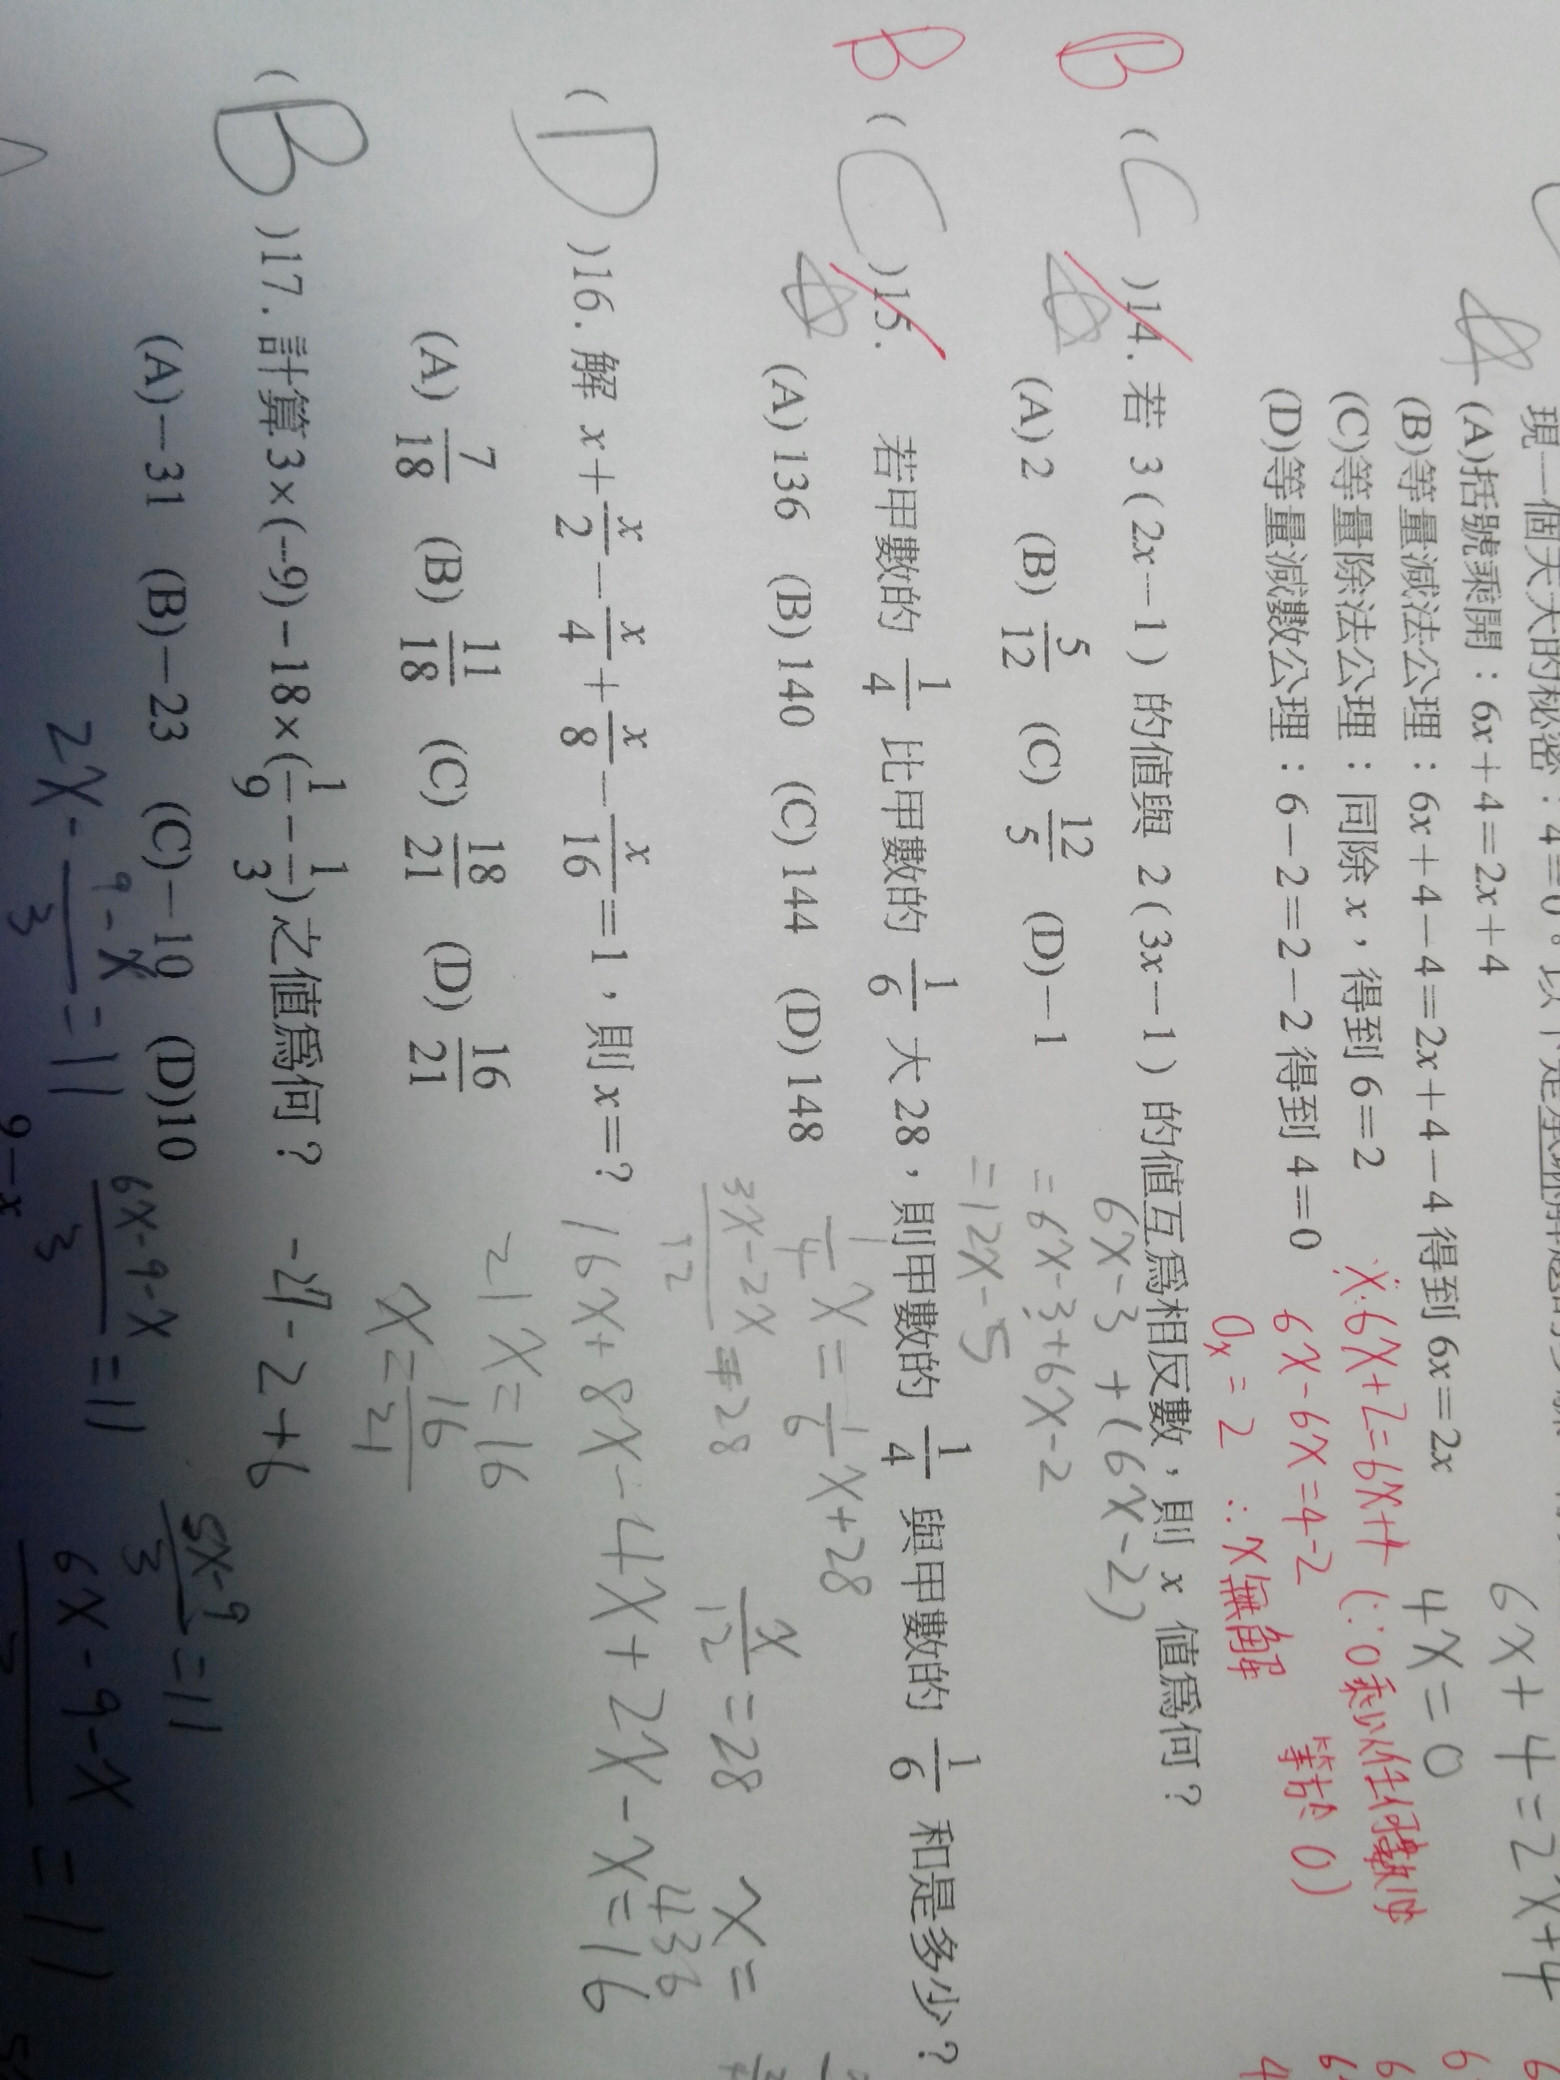 現一個天大的秘密：4=0。以下是
(A)括號乘開：6x+4=2x+4
(B)等量減法公理：6x+4-4=2x+4-4 得到 6x=2x
(C)等量除法公理：同除 x，得到 6=2
(D)等量減數公理：6-2=2-2 得到 4=0
6x+4=2x+4
4x=0
6x+2=6x+4 (∵0乘以任何數皆
等於 0)
6x-6x=4-2
0x=2 ∴x無解
B
( C )14. 若 3(2x-1) 的值與 2(3x-1) 的值互為相反數，則 x 值為何？
(A) 2 (B) 5/12 (C) 12/5 (D)-1
6x-3+(6x-2)
=6x-3+6x-2
=12x-5
B
( C )15. 若甲數的 1/4 比甲數的 1/6 大 28，則甲數的 1/4 與甲數的 1/6 和是多少？
(A) 136 (B) 140 (C) 144 (D) 148
1/4 x = 1/6 x+28
3x-2x/12 = 28
x/12 = 28
x=
436
( D )16. 解 x+x/2-x/4+x/8-x/16=1，則 x=？
16x+8x-4x+2x-x=16
(A) 7/18 (B) 11/18 (C) 18/21 (D) 16/21
21x=16
x=16/21
( B )17. 計算 3×(-9)-18×(1/9-1/3)之值為何？
-27-2+6
(A)-31 (B)-23 (C)-10 (D)10
2x- 9-x/3 =11
6x-9-x/3 =11
5x-9/3 =11
6x-9-x =11
9-x